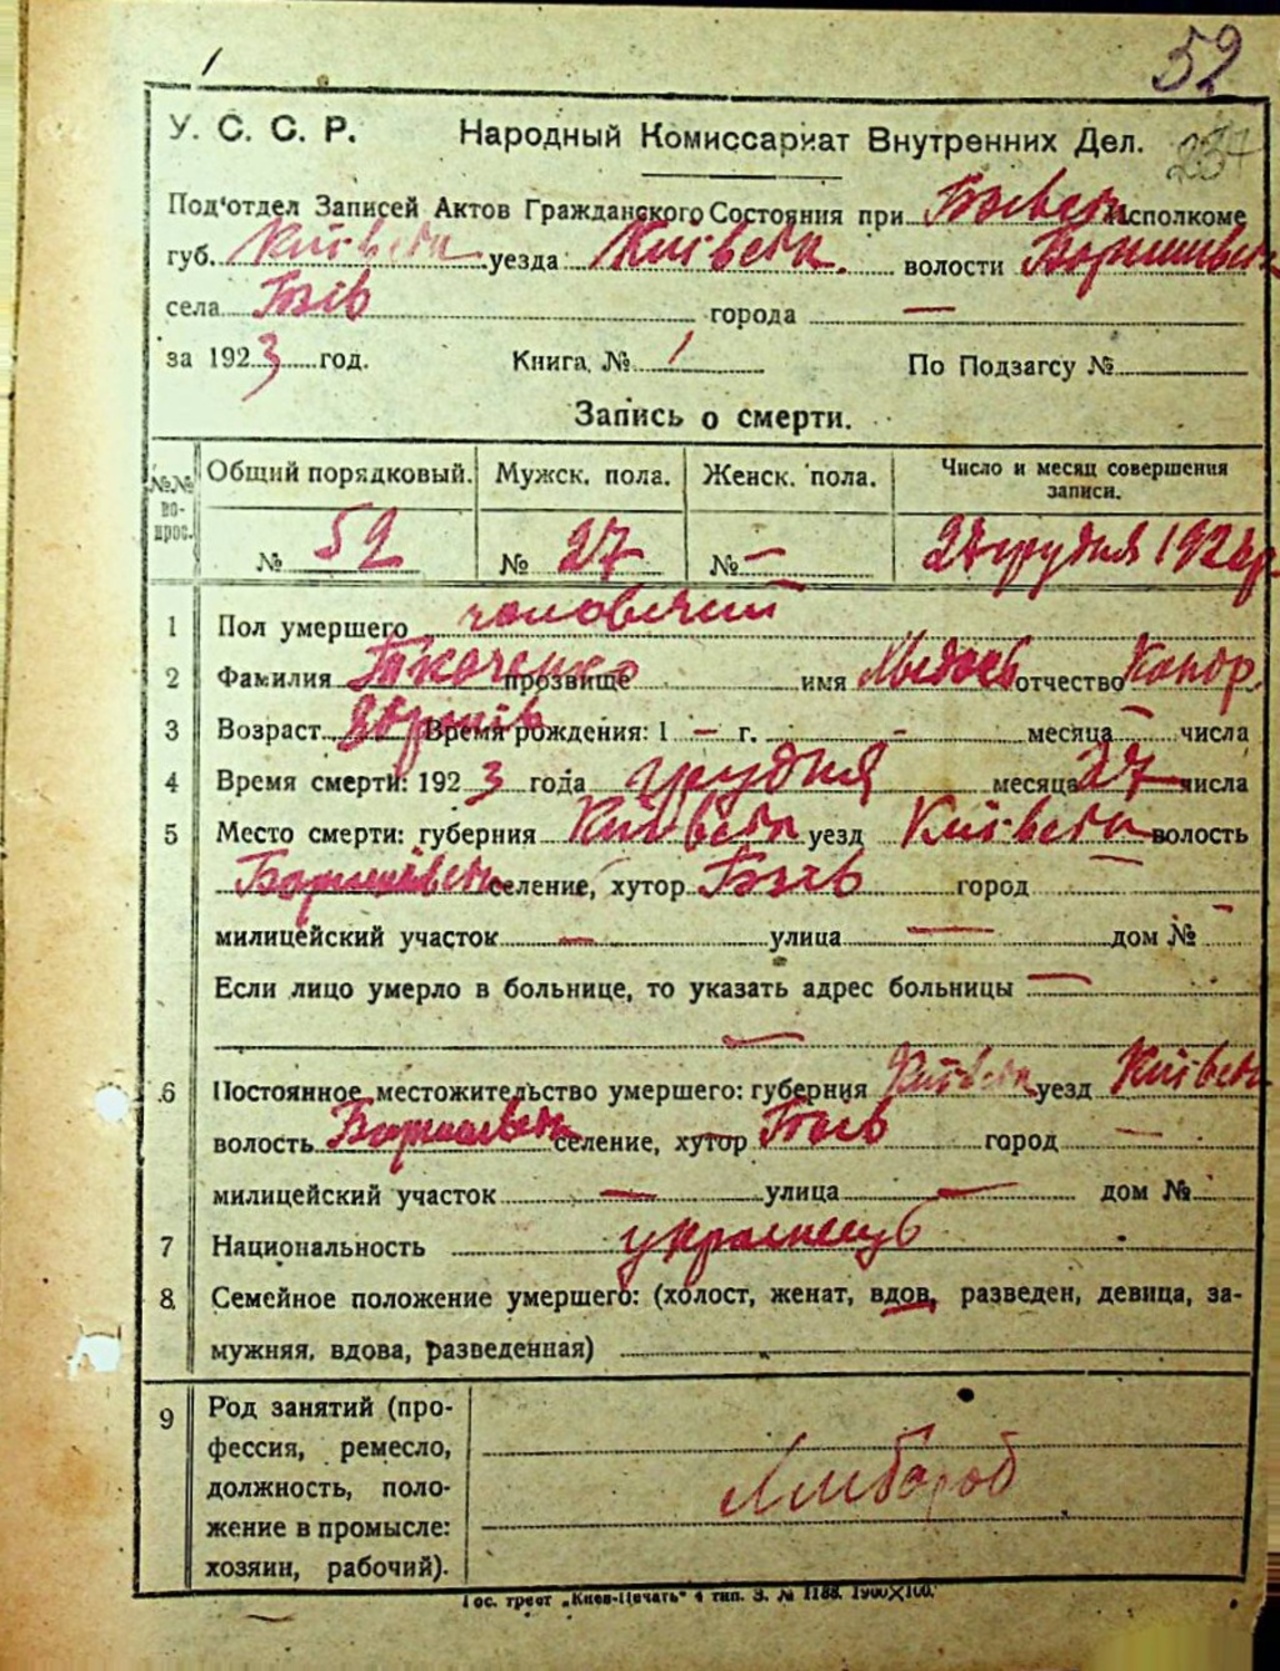 52
У. С. С. Р. Народный Комиссариат Внутренних Дел. 237
Под‘отдел Записей Актов Гражданского Состояния при Исполкоме
губ. Київськ уезда Київськ. волости
села города —
за 1923 год. Книга № 1 По Подзагсу №
Запись о смерти.
№№ вопрос. Общий порядковый. Мужск. пола. Женск. пола. Число и месяц совершения записи.
№ 52 № 27 № — грудня
1 Пол умершего чоловічий
2 Фамилия Ткаченко прозвище имя отчество
3 Возраст Время рождения: 1 — г. - месяца — числа
4 Время смерти: 1923 года грудня месяца 27 числа
5 Место смерти: губерния Київськ уезд Київськ волость
селение, хутор город —
милицейский участок — улица — дом № —
Если лицо умерло в больнице, то указать адрес больницы —
—
6 Постоянное местожительство умершего: губерния Київськ уезд Київськ
волость селение, хутор город —
милицейский участок — улица — дом №
7 Национальность українець
8. Семейное положение умершего: (холост, женат, вдов, разведен, девица, за-
мужняя, вдова, разведенная)
9 Род занятий (про-
фессия, ремесло,
должность, поло-
жение в промысле: Хлібороб
хозяин, рабочий).
Гос. трест „Киев-Печать“ 4 тип. З. № 1188. 1900×100.